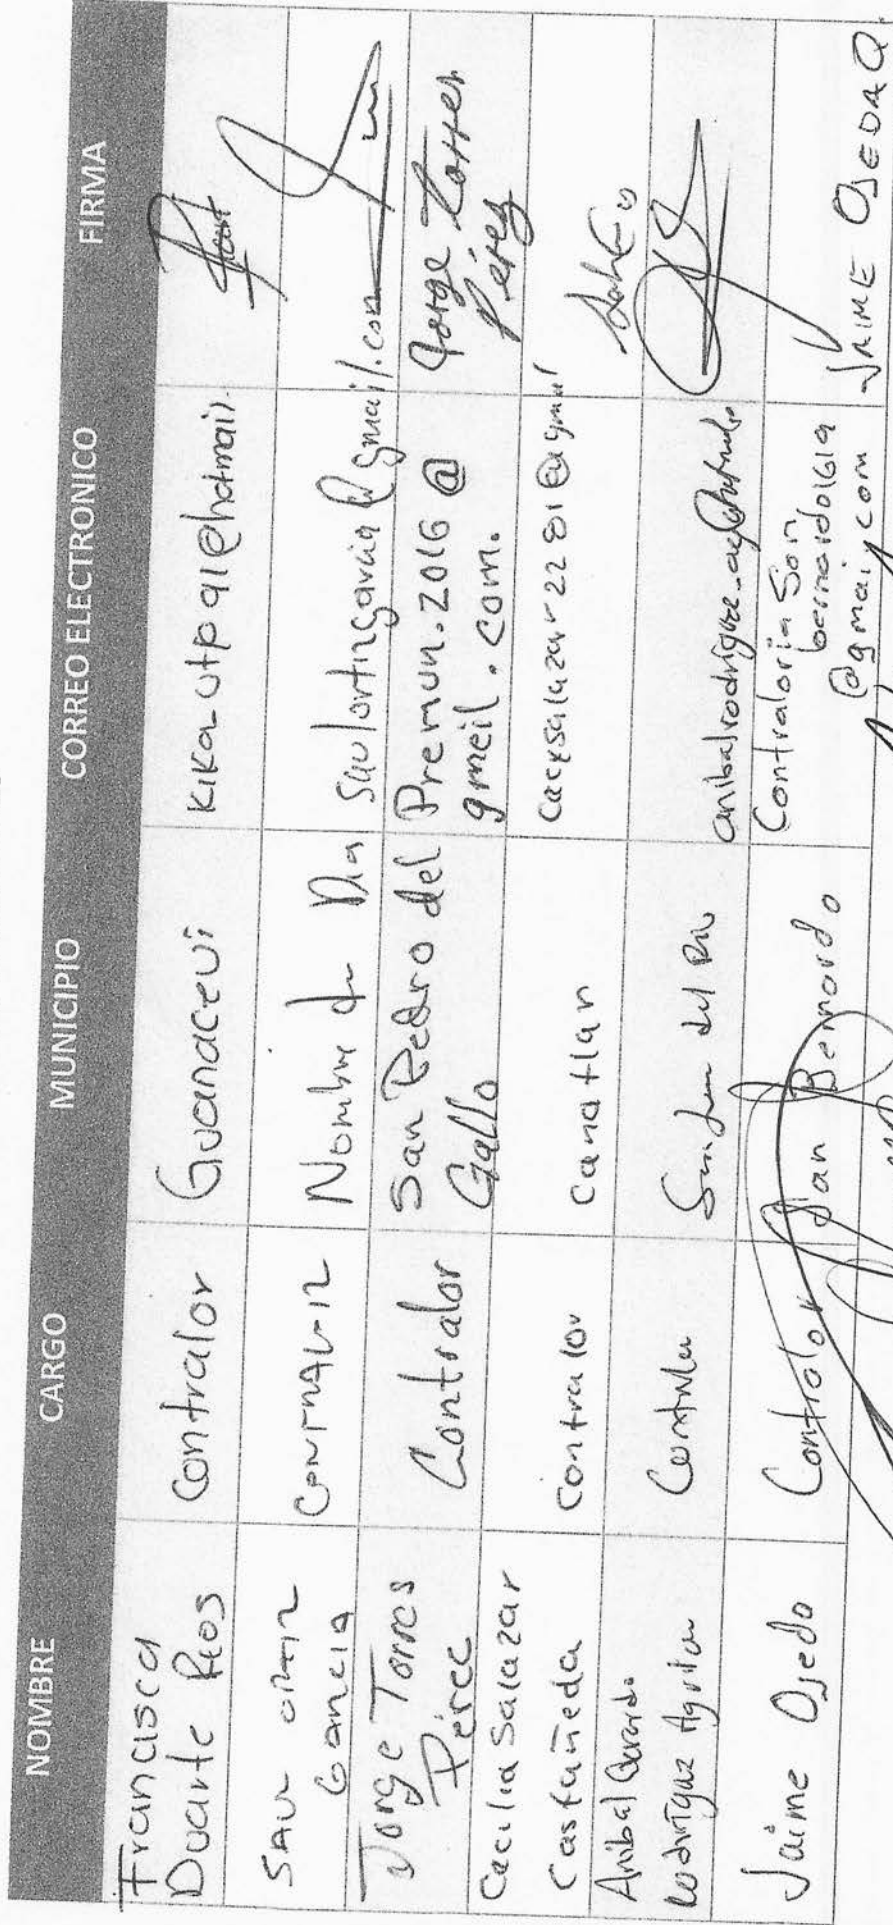 NOMBRE CARGO MUNICIPIO CORREO ELECTRONICO FIRMA
Francisca
Duarte Rios
Contralor
Guanacevi
kika_utp91@hotmail.
Saul Ortiz
Garcia
Nombre de Dios
saulortizgarcia@gmail.com
Jorge Torres
Pérez
Contralor
San Pedro del
Gallo
Premun.2016@
gmeil.com.
Jorge Torres
Pérez
Cecilia Salazar
Castañeda
Contralor
Canatlan
Anibal Gerardo
Rodriguez Aguilar
San Juan del Rio
Jaime Ojeda
Contralor
San Bernardo
Contraloria San
bernardo1619
@gmail.com
JAIME OJEDA Q.